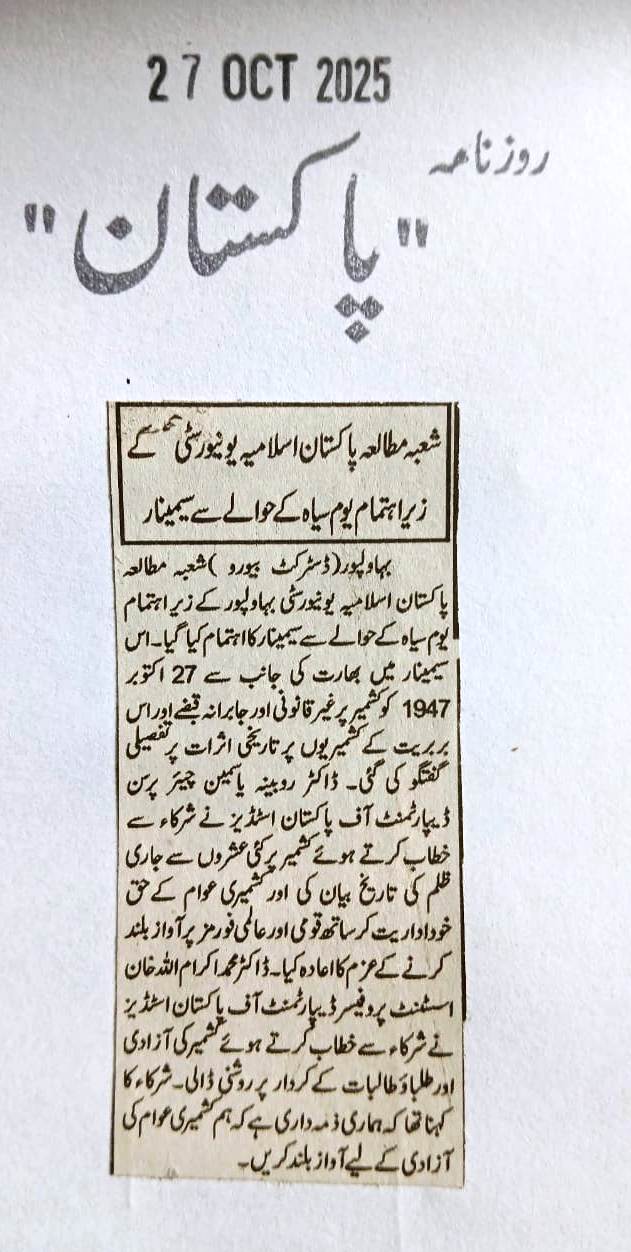 27 OCT 2025
روزنامہ
"پاکستان"
شعبہ مطالعہ پاکستان اسلامیہ یونیورسٹی کے
زیر اہتمام یوم سیاہ کے حوالے سے سیمینار
بہاولپور(ڈسٹرکٹ بیورو )شعبہ مطالعہ
پاکستان اسلامیہ یونیورسٹی بہاولپور کے زیر اہتمام
یوم سیاہ کے حوالے سے سیمینار کا اہتمام کیا گیا۔اس
سیمینار میں بھارت کی جانب سے 27 اکتوبر
1947 کو کشمیر پر غیر قانونی اور جابرانہ قبضے اور اس
بربریت کے کشمیریوں پر تاریخی اثرات پر تفصیلی
گفتگو کی گئی۔ ڈاکٹر روبینہ یاسمین چیئر پرسن
ڈیپارٹمنٹ آف پاکستان اسٹڈیز نے شرکاء سے
خطاب کرتے ہوئے کشمیر پر کئی عشروں سے جاری
ظلم کی تاریخ بیان کی اور کشمیری عوام کے حق
خوداداریت کر ساتھ قومی اور عالمی فورمز پر آواز بلند
کرنے کے عزم کا اعادہ کیا۔ڈاکٹر محمد اکرام اللہ خان
اسسٹنٹ پروفیسر ڈیپارٹمنٹ آف پاکستان اسٹڈیز
نے شرکاء سے خطاب کرتے ہوئے کشمیر کی آزادی
اور طلباؤ طالبات کے کردار پر روشنی ڈالی۔شرکاء کا
کہنا تھا کہ ہماری ذمہ داری ہے کہ ہم کشمیری عوام کی
آزادی کے لیے آواز بلند کریں۔